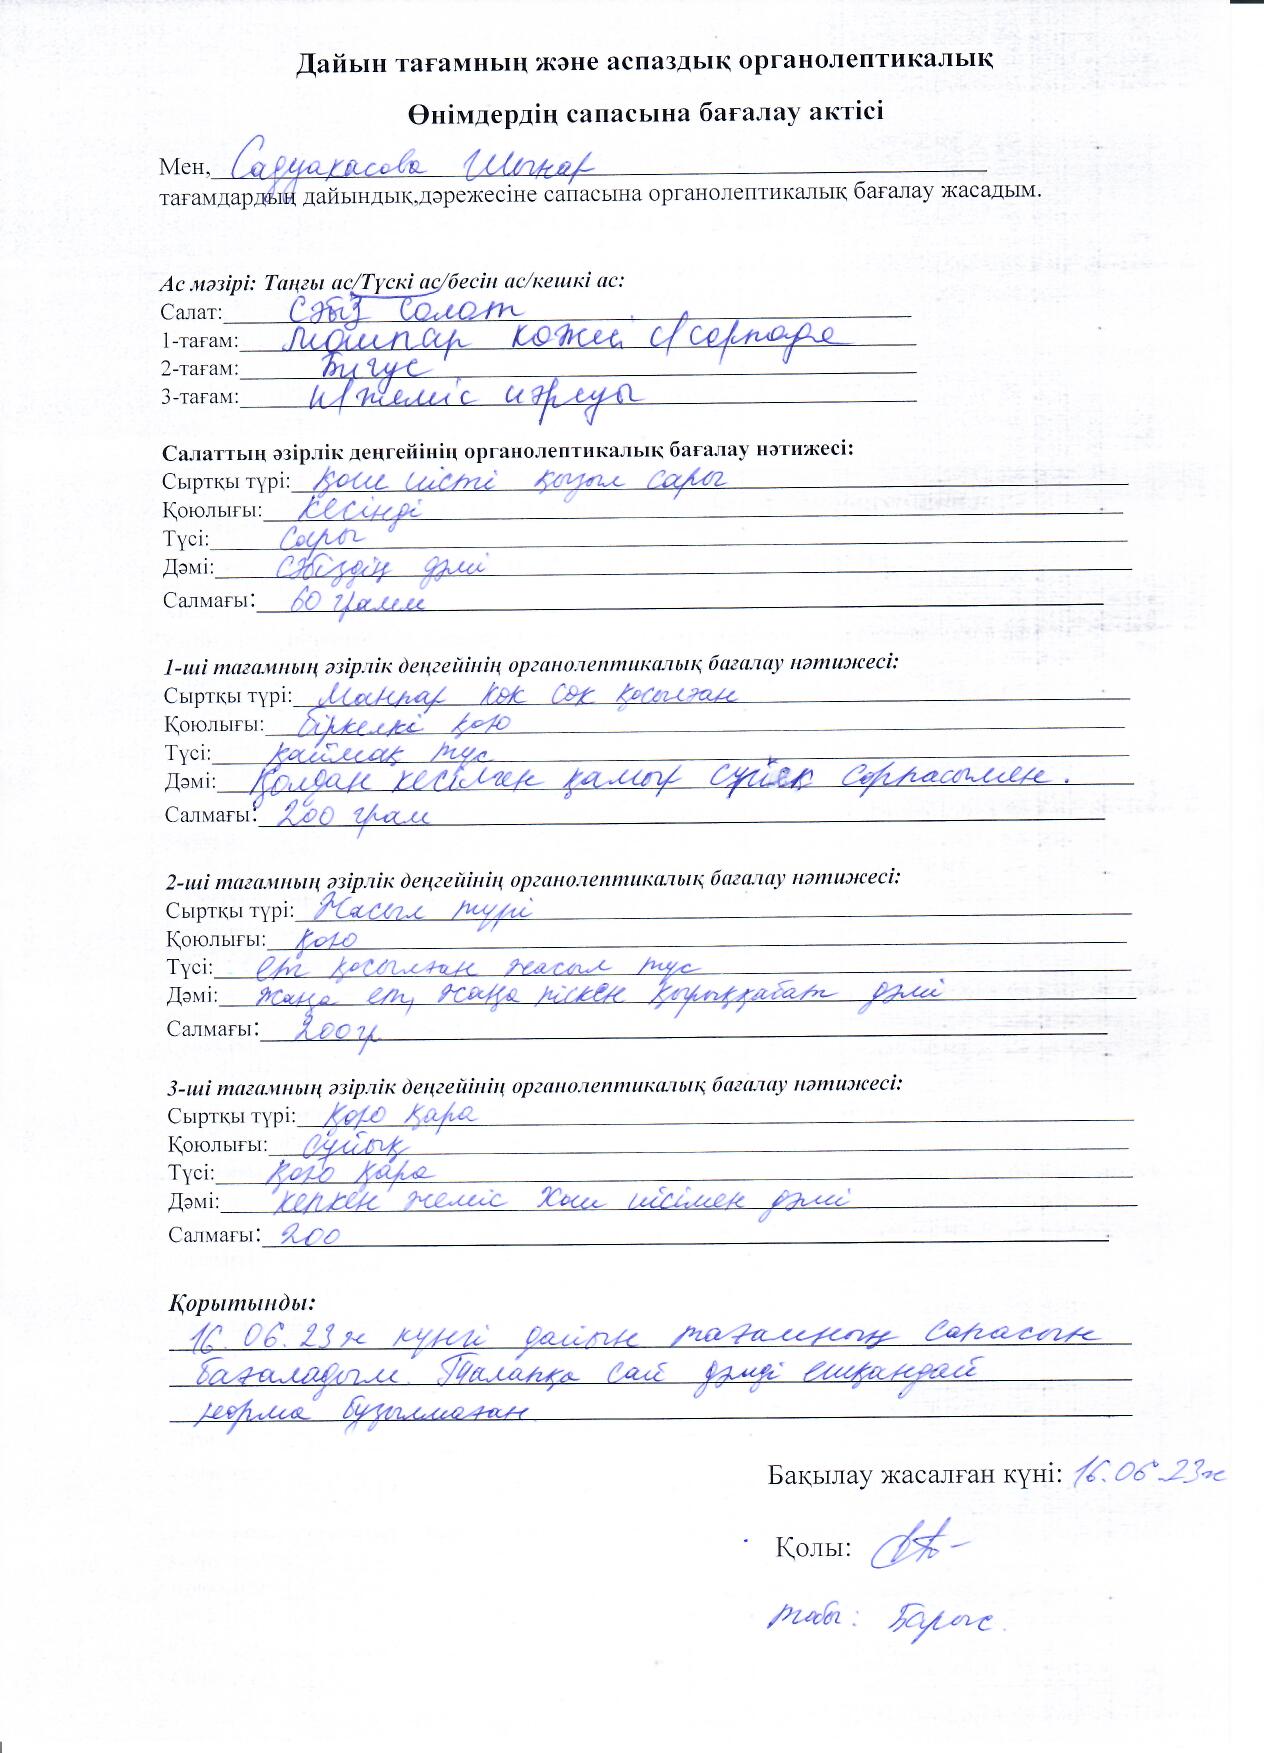 Дайын тағамның және аспаздық органолептикалық
Өнімдердің сапасына бағалау актісі
Мен, Садуакасова Шынар
тағамдардың дайындық,дәрежесіне сапасына органолептикалық бағалау жасадым.
Ас мәзірі: Таңғы ас/Түскі ас/бесін ас/кешкі ас:
Салат: Сәбіз салат
1-тағам: Мампар көже с/сорпада
2-тағам: Бигус
3-тағам: к/жеміс шәрбаты
Салаттың әзірлік деңгейінің органолептикалық бағалау нәтижесі:
Сыртқы түрі: Қош иісті қызыл сары
Қоюлығы: кесінді
Түсі: Сары
Дәмі: Сәбіздің дәмі
Салмағы: 60 грамм
1-ші тағамның әзірлік деңгейінің органолептикалық бағалау нәтижесі:
Сыртқы түрі: Манпар көк сөк қосылған
Қоюлығы: біркелкі қою
Түсі: қаймақ түс
Дәмі: Қолдан кесілген қамыр сүйек сорпасымен.
Салмағы: 200 грам
2-ші тағамның әзірлік деңгейінің органолептикалық бағалау нәтижесі:
Сыртқы түрі: Жасыл түрі
Қоюлығы: қою
Түсі: ет қосылған жасыл түс
Дәмі: жаңа ет, жаңа піскен қырыққабат дәмі
Салмағы: 200гр
3-ші тағамның әзірлік деңгейінің органолептикалық бағалау нәтижесі:
Сыртқы түрі: Қою қара
Қоюлығы: сұйық
Түсі: Қою қара
Дәмі: кепкен жеміс хош иісімен дәмі
Салмағы: 200
Қорытынды:
16.06.23ж күнгі дайын тағамның сапасын
бағаладым. Талапқа сай дәмді ешқандай
норма бузылмаған
Бақылау жасалған күні: 16.06.23ж
Қолы:
тобы: Барыс.